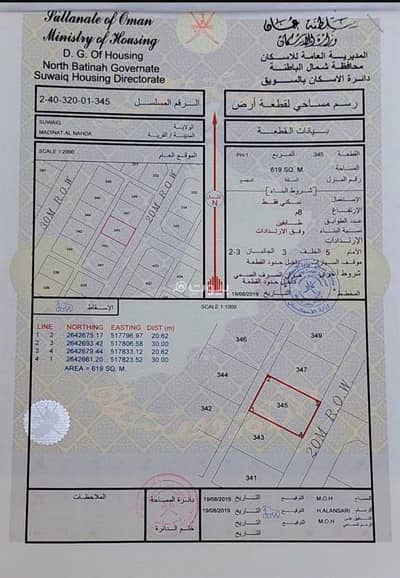 Sultanate of Oman
Ministry of Housing
D. G. Of Housing
North Batinah Governate
Suwaiq Housing Directorate
سلطنة عمان
وزارة الإسكان
المديرية العامة للاسكان
محافظة شمال الباطنة
دائرة الاسكان بالسويق
2-40-320-01-345
الرقم المسلسل
رسم مساحي لقطعة أرض
SUWAIQ
الولاية
MADINAT AL NAHDA
المدينة / القرية
بيانات القطعة
SCALE 1:2000
الموقع العام
القطعة 345 المربع PH-1
المساحة 619 SQ. M.
رقم المنزل
شروط البناء
الإستعمال سكني فقط
الإرتفاع 8م
عدد الطوابق طابقين
نسبة البناء وفق الارتدادات
الإرتدادات
الأمام 5 الخلف 3 الجانبين 2-3
موقف السيارات داخل حدود القطعة
داخل حدود القطعة
19/08/2019
30M R.O.W
20M R.O.W
345
N
بيوت
الإسقاط
SCALE 1:1000
LINE NORTHING EASTING DIST (m)
1 2 2642675.17 517796.97 20.62
2 3 2642693.42 517806.58 30.00
3 4 2642679.44 517833.12 20.62
4 1 2642661.20 517823.52 30.00
AREA = 619 SQ. M.
346
349
344
347
342
345
343
341
20M R.O.W
الملاحظات
دائرة المساحة
ختم الدائرة
19/08/2019 التاريخ التوقيع M.O.H
19/08/2019 التاريخ التوقيع H.ALANSARI الرسام
التاريخ التوقيع M.O.H